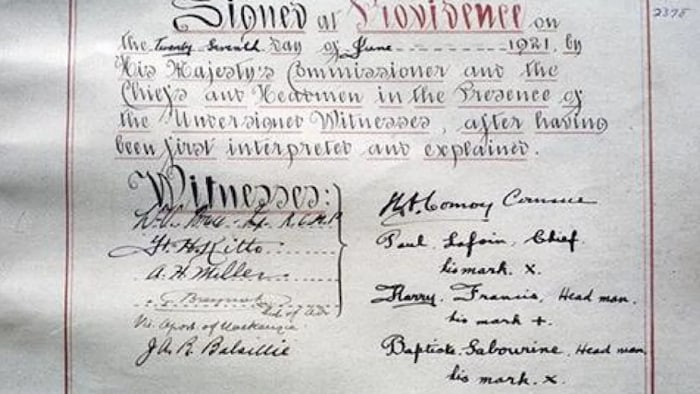 Signed at Providence on
the twenty seventh day of June 1921, by
His Majesty's Commissioner and the
Chiefs and Headmen in the Presence of
the Undersigned Witnesses, after having
been first interpreted and explained.
Witnesses:
R.C.M.P.
F. H. Kitto
A. H. Miller
of Mackenzie
J. A. R. Balsillie
H. A. Conroy
Paul Lafoin, Chief.
his mark. X.
Harry. Francis, Head man.
his mark +.
Baptiste. Sabourine, Head man,
his mark. X.
2375